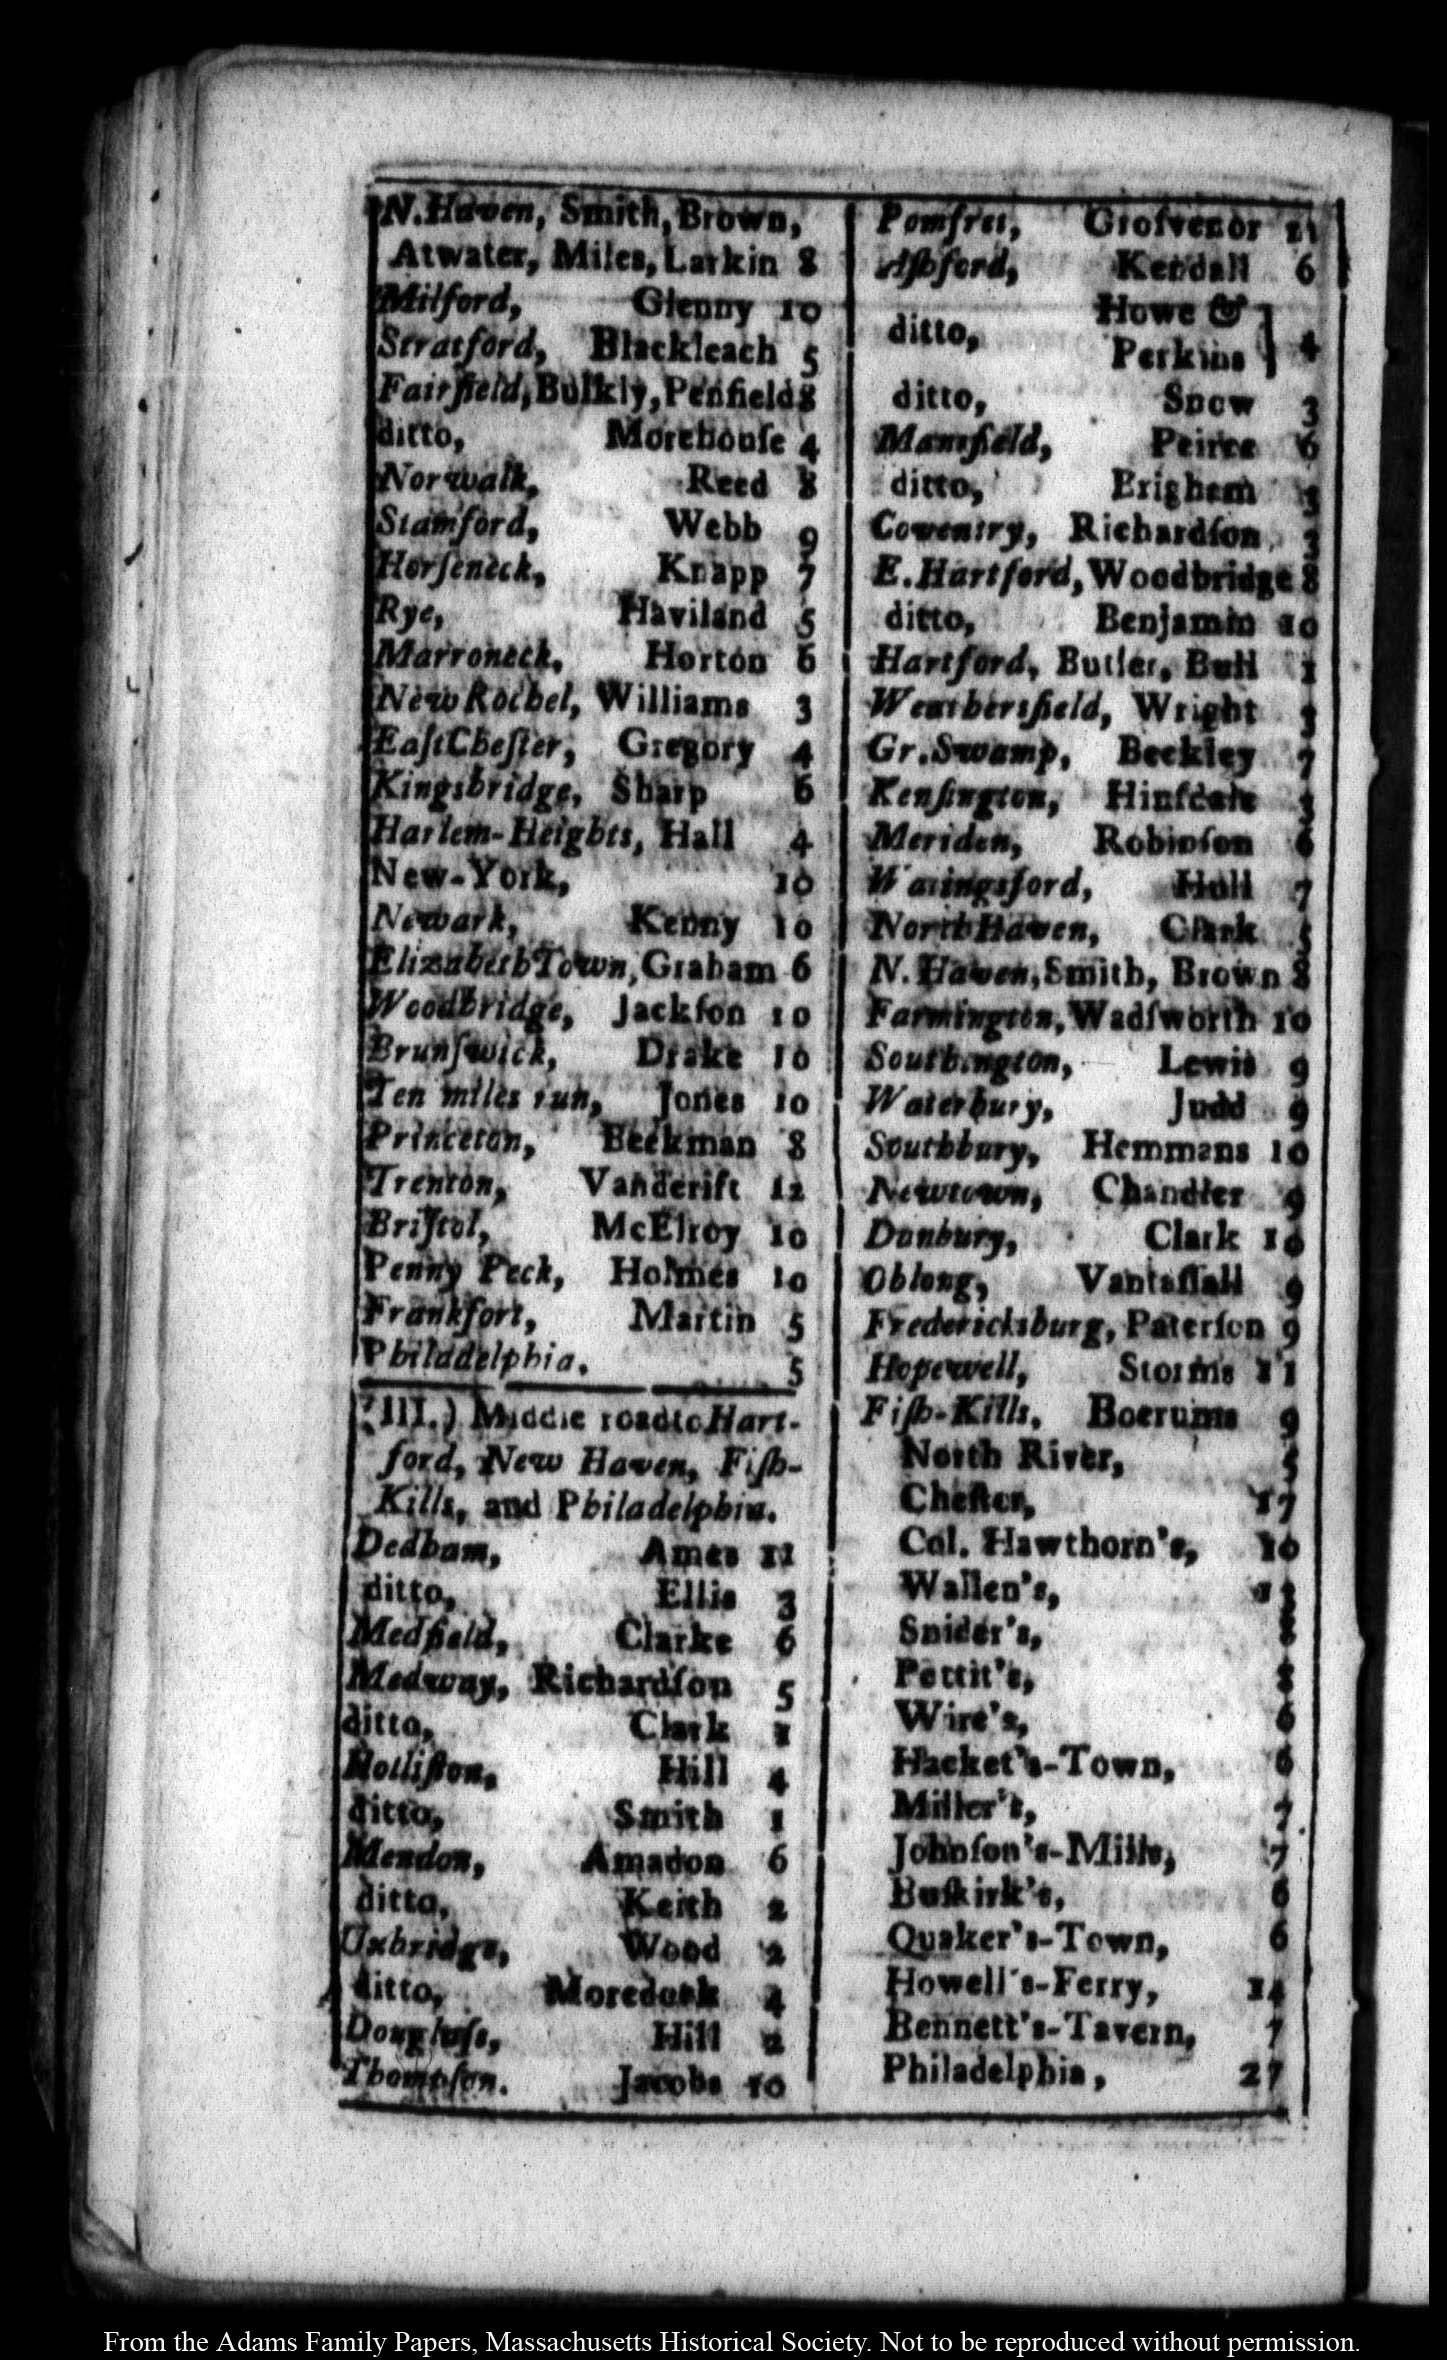 N. Haven, Smith, Brown,
Atwater, Miles, Larkin 8
Milford, Glenny 10
Stratford, Blackleach 5
Fairfield, Bulkly, Penfield 8
ditto, Morehouſe 4
Norwalk, Reed 8
Stamford, Webb 9
Horſeneck, Knapp 7
Rye, Haviland 5
Marroneck, Horton 6
New Rochel, Williams 3
Eaſt Cheſter, Gregory 4
Kingsbridge, Sharp 6
Harlem-Heights, Hall 4
New-York, 10
Newark, Kenny 10
Elizabeth Town, Graham 6
Woodbridge, Jackſon 10
Brunſwick, Drake 10
Ten miles run, Jones 10
Princeton, Beekman 8
Trenton, Vanderift 12
Briſtol, McElroy 10
Penny Peck, Holmes 10
Frankfort, Martin 5
Philadelphia. 5
(III.) Middle road to Hart-
ford, New Haven, Fiſh-
Kills, and Philadelphia.
Dedham, Ames 11
ditto, Ellis 3
Medfield, Clarke 6
Medway, Richardſon 5
ditto, Clark 1
Holliſton, Hill 4
ditto, Smith 1
Mendon, Amadon 6
ditto, Keith 2
Uxbridge, Wood 2
ditto, Moredock 4
Douglaſs, Hill 2
Thompſon. Jacobs 10
Pomfret, Groſvenor 11
Aſhford, Kendall 6
ditto, Howe & Perkins } 4
ditto, Snow 3
Mansfield, Peirce 6
ditto, Brigham 3
Coventry, Richardſon, 3
E. Hartford, Woodbridge 8
ditto, Benjamin 10
Hartford, Butler, Bull 1
Weathersfield, Wright 3
Gr. Swamp, Beckley 7
Kenſington, Hinſdale 3
Meriden, Robinſon 6
Wallingsford, Hull 7
North Haven, Clark 5
N. Haven, Smith, Brown 8
Farmington, Wadſworth 10
Southington, Lewis 9
Waterbury, Judd 9
Southbury, Hemmans 10
Newtown, Chandler 9
Danbury, Clark 10
Oblong, Vantaſſall 9
Fredericksburg, Paterſon 9
Hopewell, Storms 11
Fiſh-Kills, Boerums 9
North River, 5
Cheſter, 17
Col. Hawthorn's, 10
Wallen's,
Snider's, 8
Pettit's, 8
Wire's, 6
Hacket's-Town, 6
Miller's, 7
Johnſon's-Mills, 7
Buſkirk's, 6
Quaker's-Town, 6
Howell's-Ferry, 14
Bennett's-Tavern, 7
Philadelphia, 27
From the Adams Family Papers, Massachusetts Historical Society. Not to be reproduced without permission.